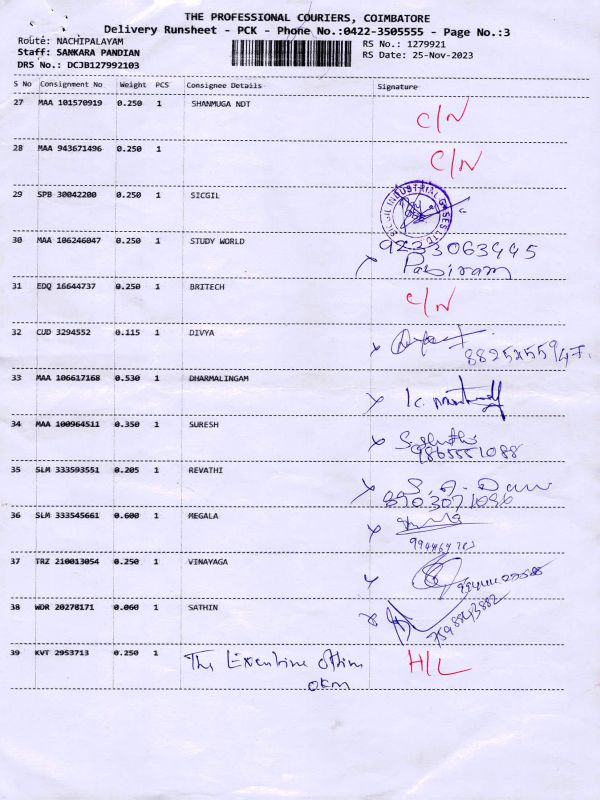 THE PROFESSIONAL COURIERS, COIMBATORE
Delivery Runsheet - PCK - Phone No.:0422-3505555 - Page No.:3
Route: NACHIPALAYAM
RS No.: 1279921
Staff: SANKARA PANDIAN
RS Date: 25-Nov-2023
DRS No.: DCJB127992103
S No Consignment No Weight PCS Consignee Details Signature
27 MAA 101570919 0.250 1 SHANMUGA NDT C/N
28 MAA 943671496 0.250 1 C/N
29 SPB 30042200 0.250 1 SICGIL
SICGIL INDUSTRIAL GASES LTD
30 MAA 106246047 0.250 1 STUDY WORLD 9233063445
31 EDQ 16644737 0.250 1 BRITECH C/N
32 CUD 3294552 0.115 1 DIVYA
33 MAA 106617168 0.530 1 DHARMALINGAM
34 MAA 100964511 0.350 1 SURESH
9865551088
35 SLM 333593551 0.205 1 REVATHI
8903071096
36 SLM 333545661 0.600 1 MEGALA
37 TRZ 210013054 0.250 1 VINAYAGA
38 WDR 20278171 0.060 1 SATHIN
7598843882
39 KVT 2953713 0.250 1 The Executive H/L
okm